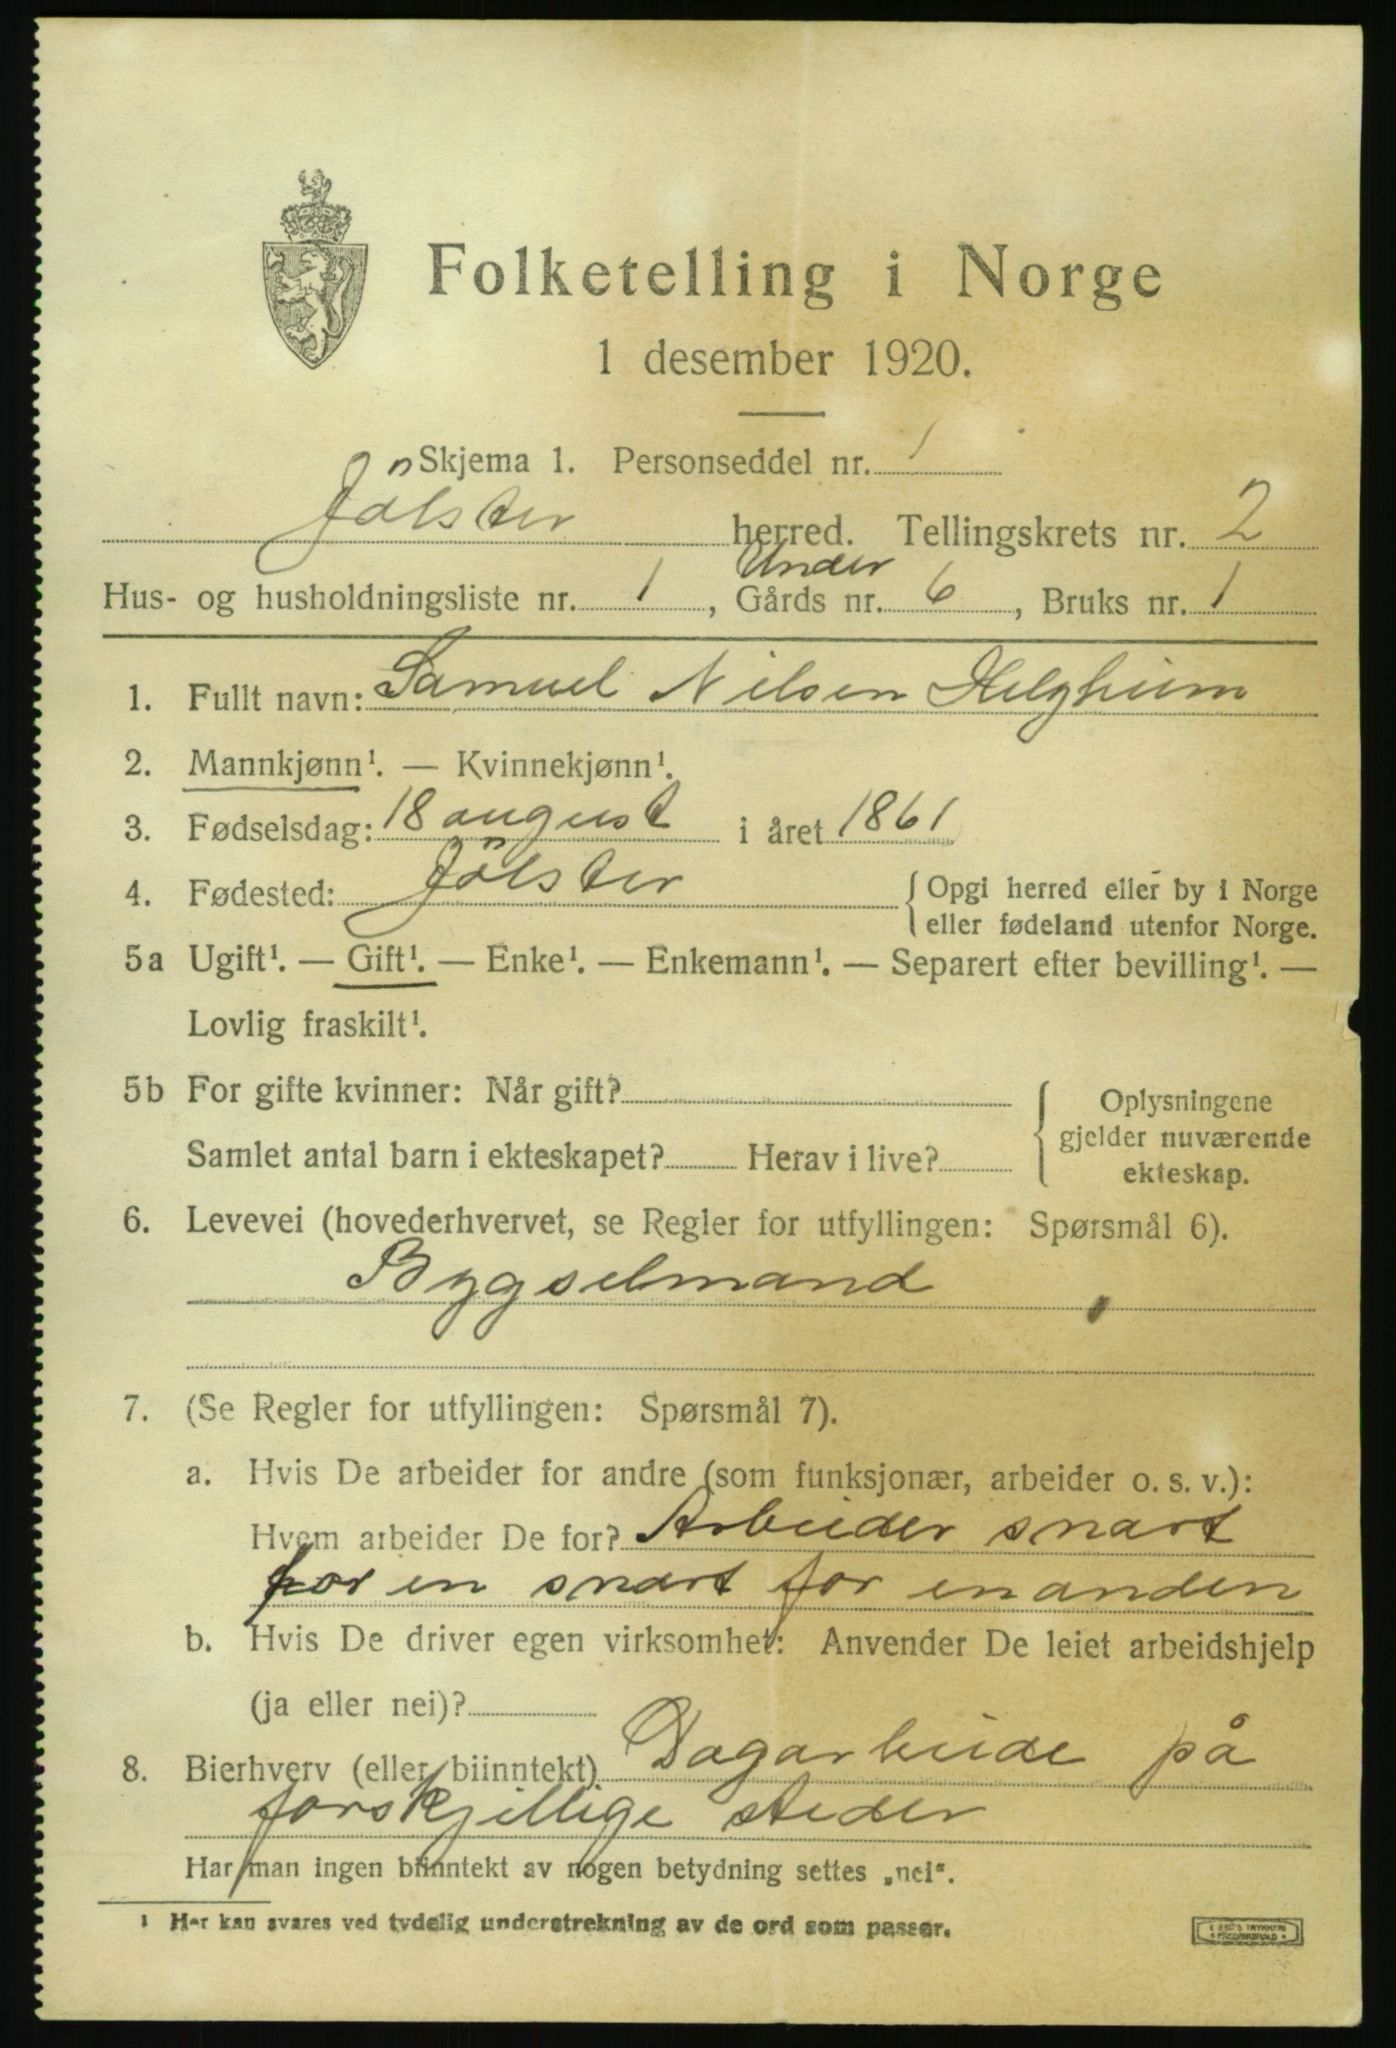 Folketelling i Norge
1 desember 1920.
Skjema 1. Personseddel nr. 1
Jölster herred. Tellingskrets nr. 2
Under
Hus- og husholdningsliste nr. 1, Gårds nr. 6, Bruks nr. 1
1. Fullt navn: Samuel Nilsen Helgheim
2. Mannkjønn¹. — Kvinnekjønn¹.
3. Fødselsdag: 18 august i året 1861
4. Fødested: Jölster { Opgi herred eller by i Norge
eller fødeland utenfor Norge.
5a Ugift¹. — Gift¹. — Enke¹. — Enkemann¹. — Separert efter bevilling¹. —
Lovlig fraskilt¹.
5b For gifte kvinner: Når gift?
Samlet antal barn i ekteskapet? Herav i live?
{ Oplysningene
gjelder nuværende
ekteskap.
6. Levevei (hovederhvervet, se Regler for utfyllingen: Spørsmål 6).
Bygselmand
7. (Se Regler for utfyllingen: Spørsmål 7).
a. Hvis De arbeider for andre (som funksjonær, arbeider o. s. v.):
Hvem arbeider De for? Arbeider snart
for en snart for enanden
b. Hvis De driver egen virksomhet: Anvender De leiet arbeidshjelp
(ja eller nei)?
8. Bierhverv (eller biinntekt) Dagarbeide på
forskjellige steder
Har man ingen biinntekt av nogen betydning settes „nei“.
¹ Her kan svares ved tydelig understrekning av de ord som passer.